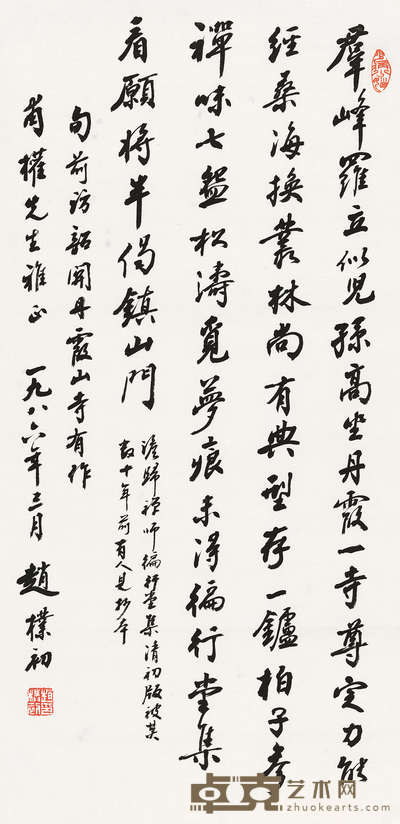 羣峰羅立似兒孫高坐丹霞一寺尊定力能
經桑海換叢林尚有典型存一鑪柏子參
禪味七盌松濤覓夢痕未得徧行堂集
看願將半偈鎮山門
澹歸禪師徧行堂集清初版被焚
數十年前有人見抄本
旬前訪韶關丹霞山寺有作
權先生雅正 一九八六年三月 趙樸初
卓克艺术网
zhuokearts.com